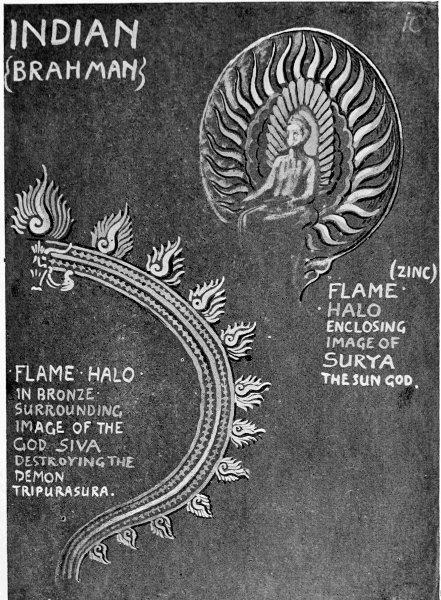 INDIAN
{BRAHMAN}
iC
(ZINC)
FLAME·
·HALO
ENCLOSING
IMAGE OF
SURYA
THE SUN GOD.
·FLAME·HALO·
IN BRONZE·
SURROUNDING
IMAGE OF THE
GOD SIVA
DESTROYING THE
DEMON
TRIPURASURA.